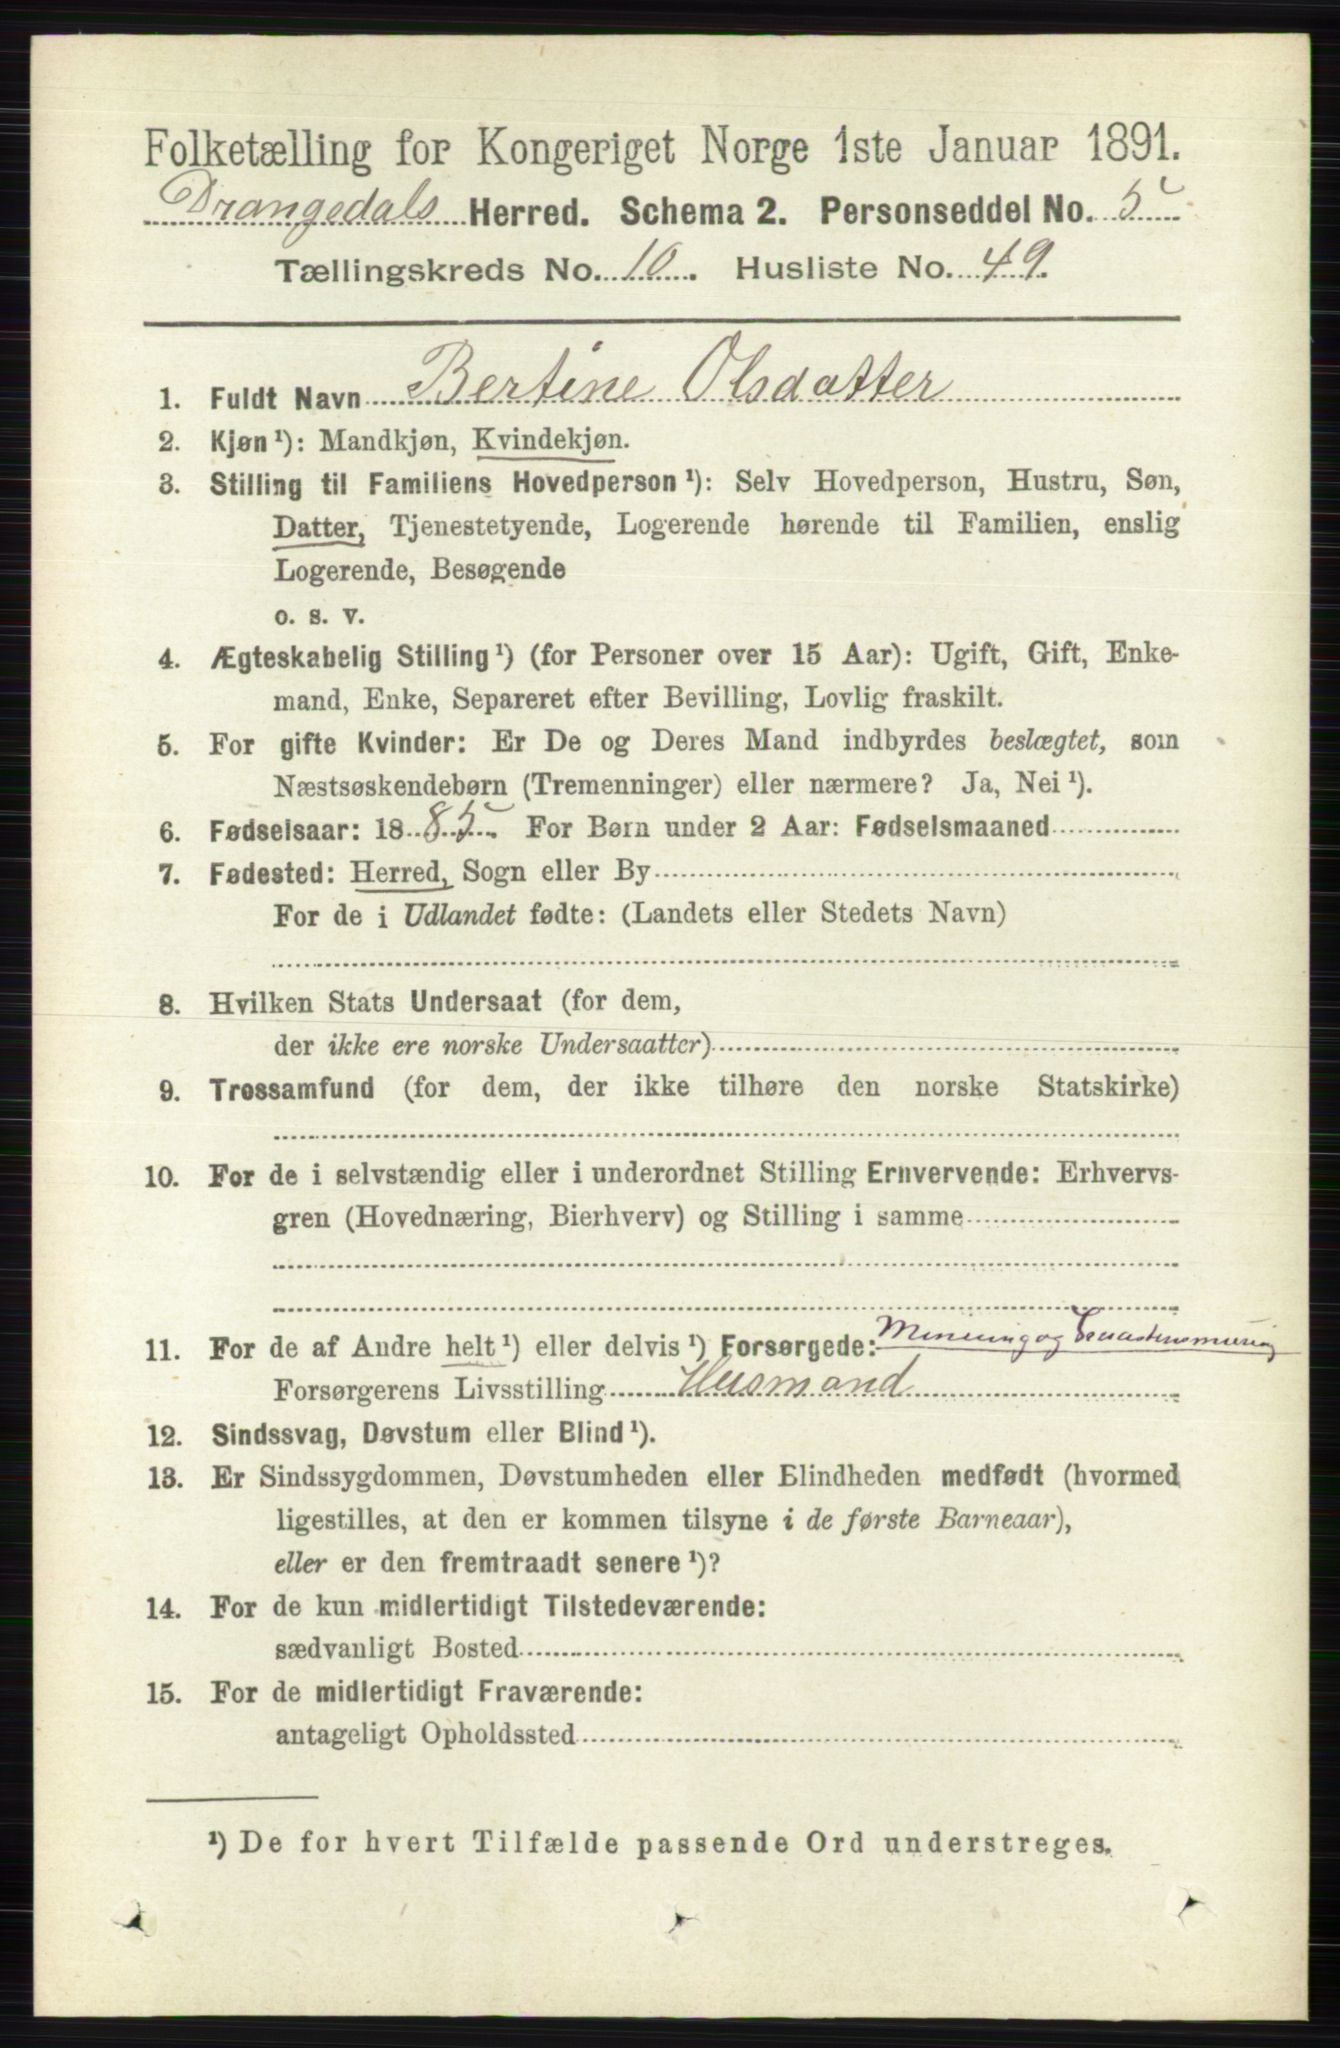 Folketælling for Kongeriget Norge 1ste Januar 1891.
Drangedals Herred. Schema 2. Personseddel No. 5
Tællingskreds No. 10. Husliste No. 49.
1. Fuldt Navn Bertine Olsdatter
2. Kjøn ¹): Mandkjøn, Kvindekjøn.
3. Stilling til Familiens Hovedperson ¹): Selv Hovedperson, Hustru, Søn,
Datter, Tjenestetyende, Logerende hørende til Familien, enslig
Logerende, Besøgende
o. s. v.
4. Ægteskabelig Stilling ¹) (for Personer over 15 Aar): Ugift, Gift, Enke-
mand, Enke, Separeret efter Bevilling, Lovlig fraskilt.
5. For gifte Kvinder: Er De og Deres Mand indbyrdes beslægtet, som
Næstsøskendebørn (Tremenninger) eller nærmere? Ja, Nei ¹).
6. Fødselsaar: 1885. For Børn under 2 Aar: Fødselsmaaned
7. Fødested: Herred, Sogn eller By
For de i Udlandet fødte: (Landets eller Stedets Navn)
8. Hvilken Stats Undersaat (for dem,
der ikke ere norske Undersaatter)
9. Trossamfund (for dem, der ikke tilhøre den norske Statskirke)
10. For de i selvstændig eller i underordnet Stilling Ernvervende: Erhvervs-
gren (Hovednæring, Bierhverv) og Stilling i samme
11. For de af Andre helt ¹) eller delvis ¹) Forsørgede: og
Forsørgerens Livsstilling Husmand
12. Sindssvag, Døvstum eller Blind ¹).
13. Er Sindssygdommen, Døvstumheden eller Blindheden medfødt (hvormed
ligestilles, at den er kommen tilsyne i de første Barneaar),
eller er den fremtraadt senere ¹)?
14. For de kun midlertidigt Tilstedeværende:
sædvanligt Bosted
15. For de midlertidigt Fraværende:
antageligt Opholdssted
¹) De for hvert Tilfælde passende Ord understreges.